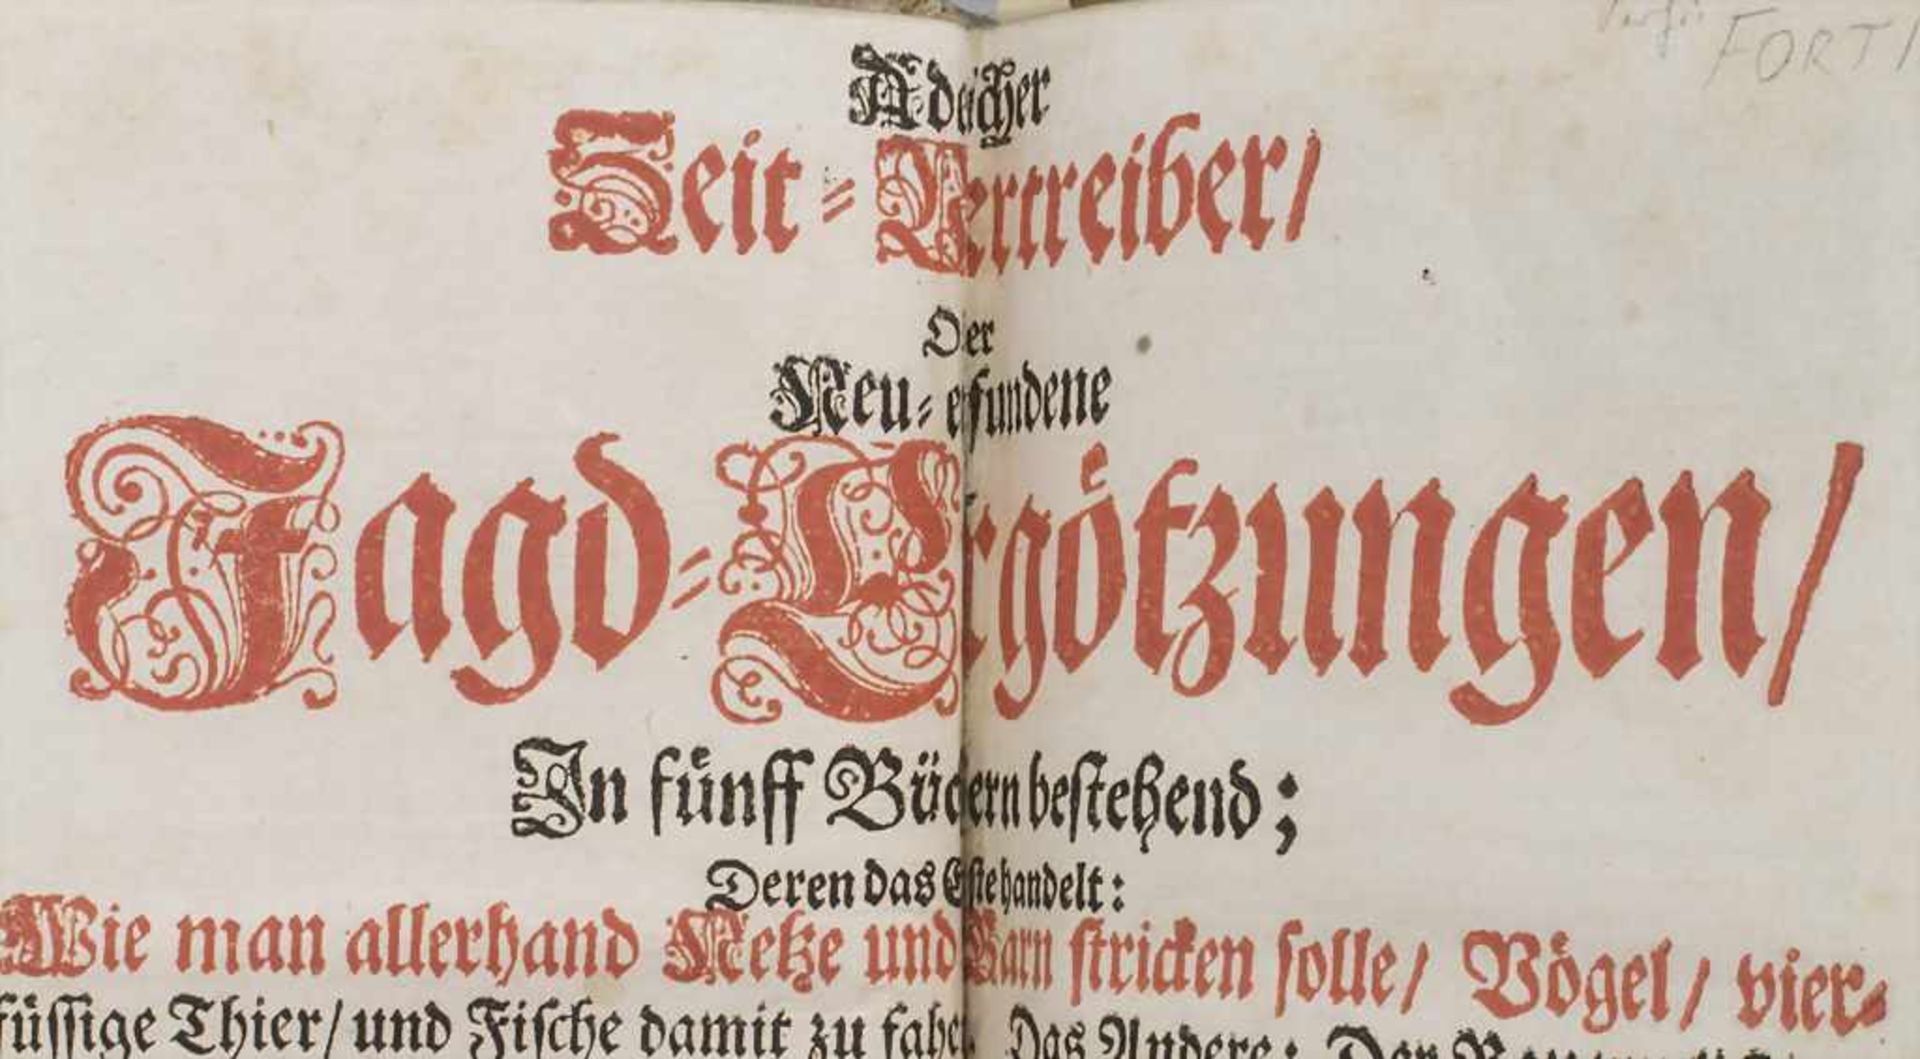 FORTI
Adelicher
Zeit-Vertreiber/
Oder
Neu-erfundene
Jagd-Ergötzungen/
In fünff Büchern bestehend;
Deren das Erste handelt:
Wie man allerhand Netze und Garn stricken solle/ Vögel/ vier-
füssige Thier/ und Fische damit zu fahen. Das Andere: Der